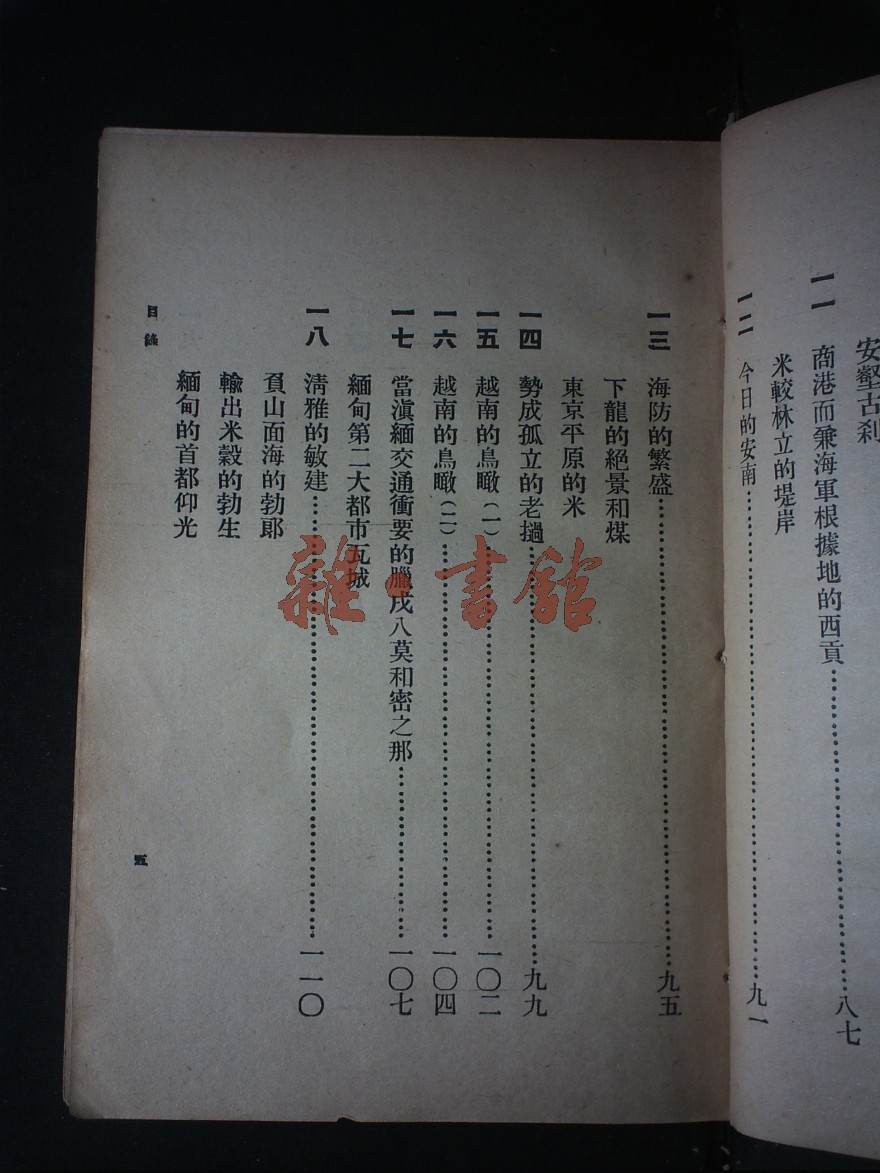 安壑古刹
一一 商港而兼海軍根據地的西貢……八七
米較林立的堤岸
一二 今日的安南……九一
一三 海防的繁盛……九五
下龍的絕景和煤
東京平原的米
一四 勢成孤立的老撾……九九
一五 越南的鳥瞰(一)……一〇二
一六 越南的鳥瞰(二)……一〇四
一七 當滇緬交通衝要的臘戌八莫和密之那……一〇七
緬甸第二大都市瓦城
一八 淸雅的敏建……一一〇
負山面海的勃郞
輸出米穀的勃生
緬甸的首都仰光
目錄
五
雜·書館